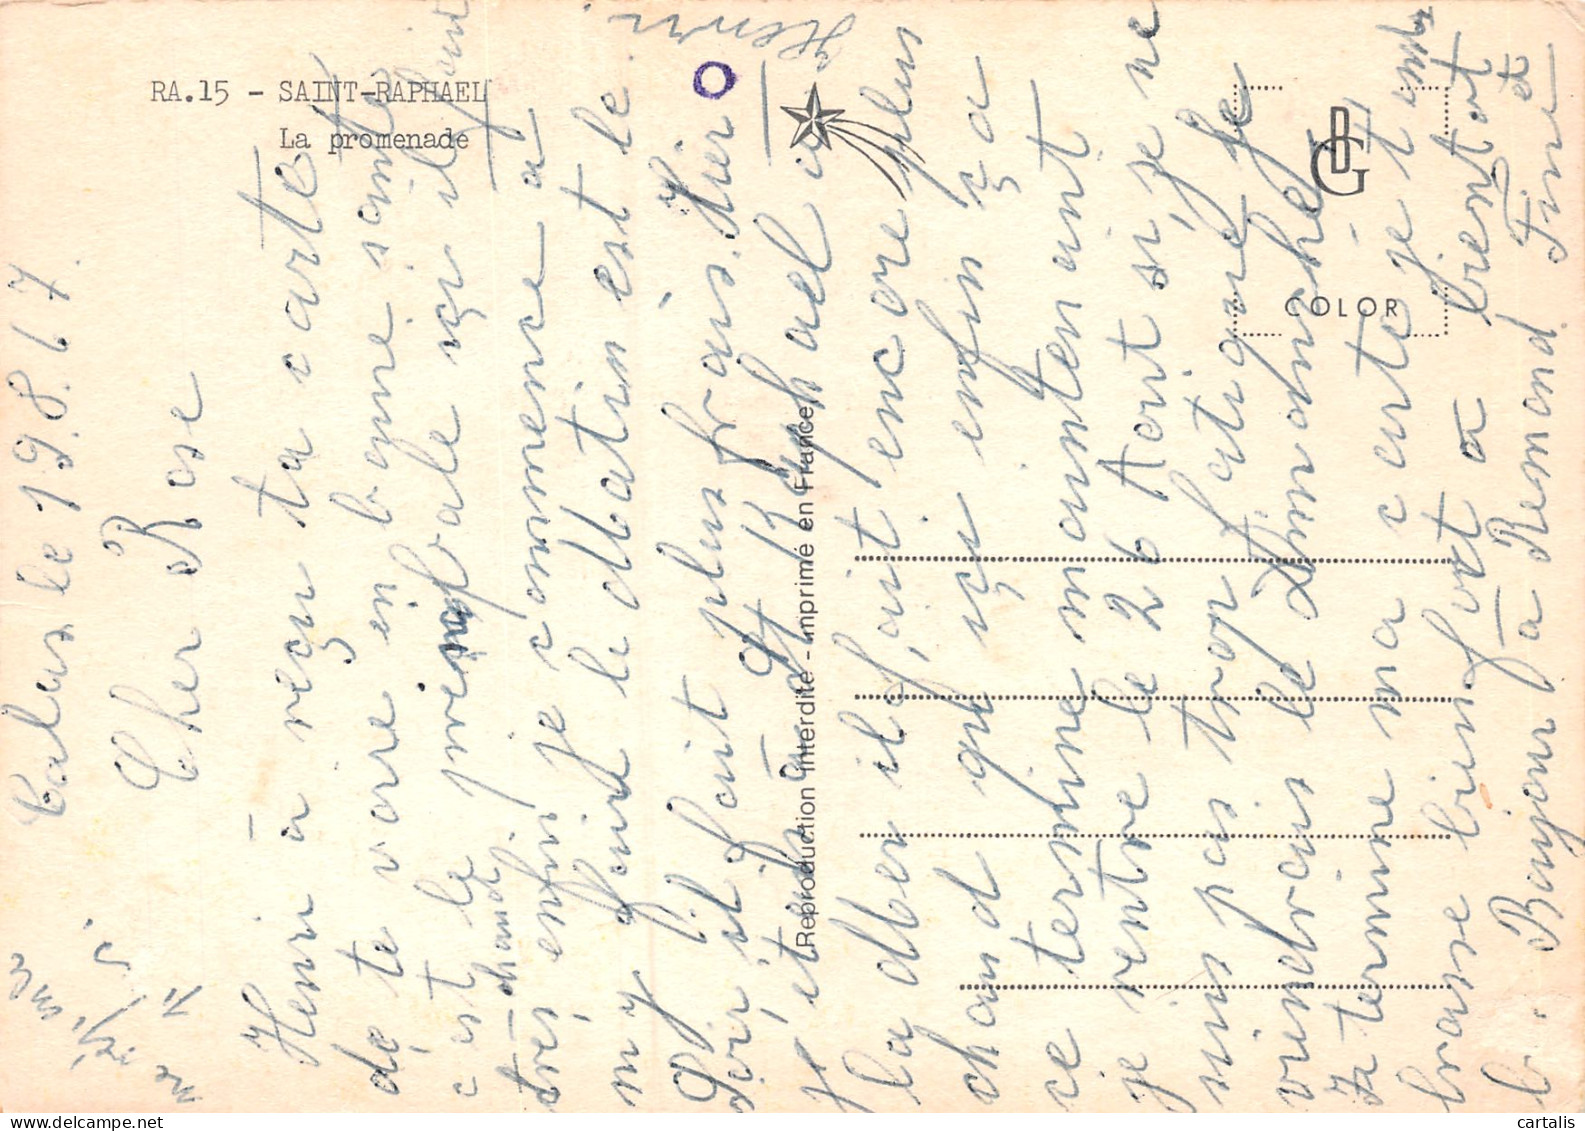 RA.15 - SAINT-RAPHAEL
La promenade
Reproduction interdite - Imprimé en France
COLOR
le 19.8.67.
Cher Rose
Henri à reçu ta carte
de te voire en bonne santé
c est le principale içi il fait
très chaud enfin je commence a
m y faire le Matin est le
soir il fait plus frais. Hier
je étè à St Raphael a
la Mer il fait encore plus
chaud que içi enfin ça
ce termine maintenant
je rentre le 26 Aout si je ne
suis pas trop fatigué je
viendrais le Dimanche
Je termine ma carte je t em
brasse bien fort a bientot
Bonjour à Remond Fine et
Henri